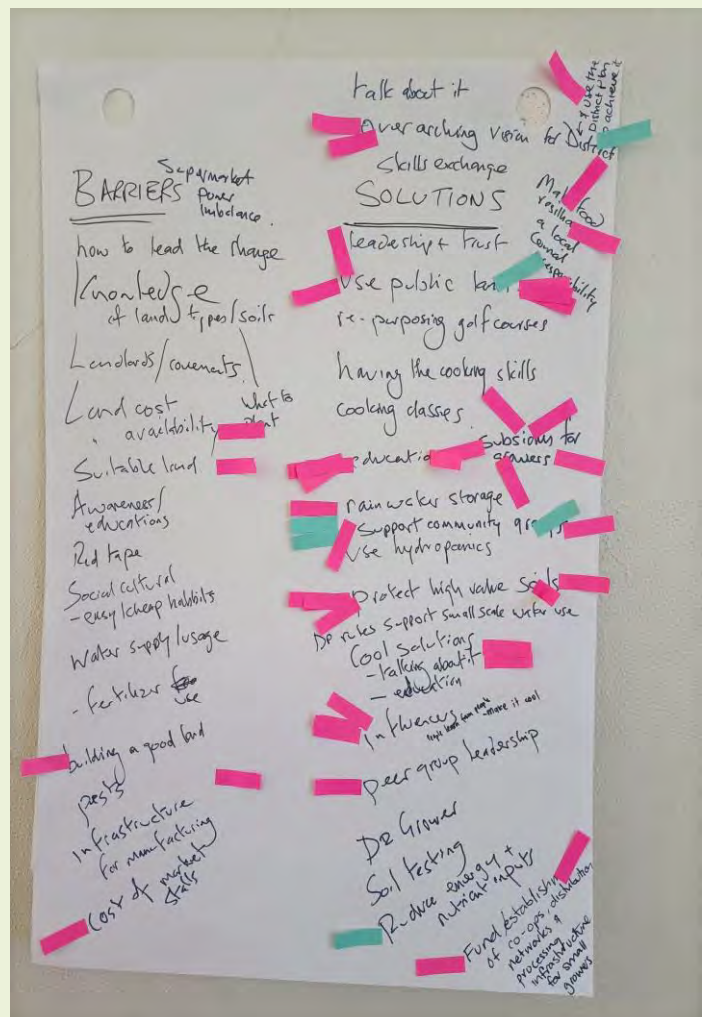 BARRIERS
Supermarket
Power
imbalance.
how to lead the change
Knowledge
of land types/soils
Landlords/covenants
Land cost
" availability
what to
Suitable land
Awareness/
educations
Red tape
Social cultural
- easy/cheap habbits
Water supply/usage
- fertilizer
use
building a good land
pests
infrastructure
for manufacturing
Cost of market
stalls
talk about it
Over arching vision for District
← & use the
District Plan
to achieve it
skills exchange
SOLUTIONS
a local
leadership + trust
use public
re-purposing golf courses
having the cooking skills
cooking classes
for
growers
education
rainwater storage
Support community
use hydroponics
Protect high value soils
DP rules support small scale water use
Cool solutions
- talking about it
- education
Influencers
- make it cool
peer group leadership
Dr Grower
Soil testing
Reduce energy +
nutrient inputs
Fund
of co-ops, distribution
networks &
processing
infrastructure
for small
growers